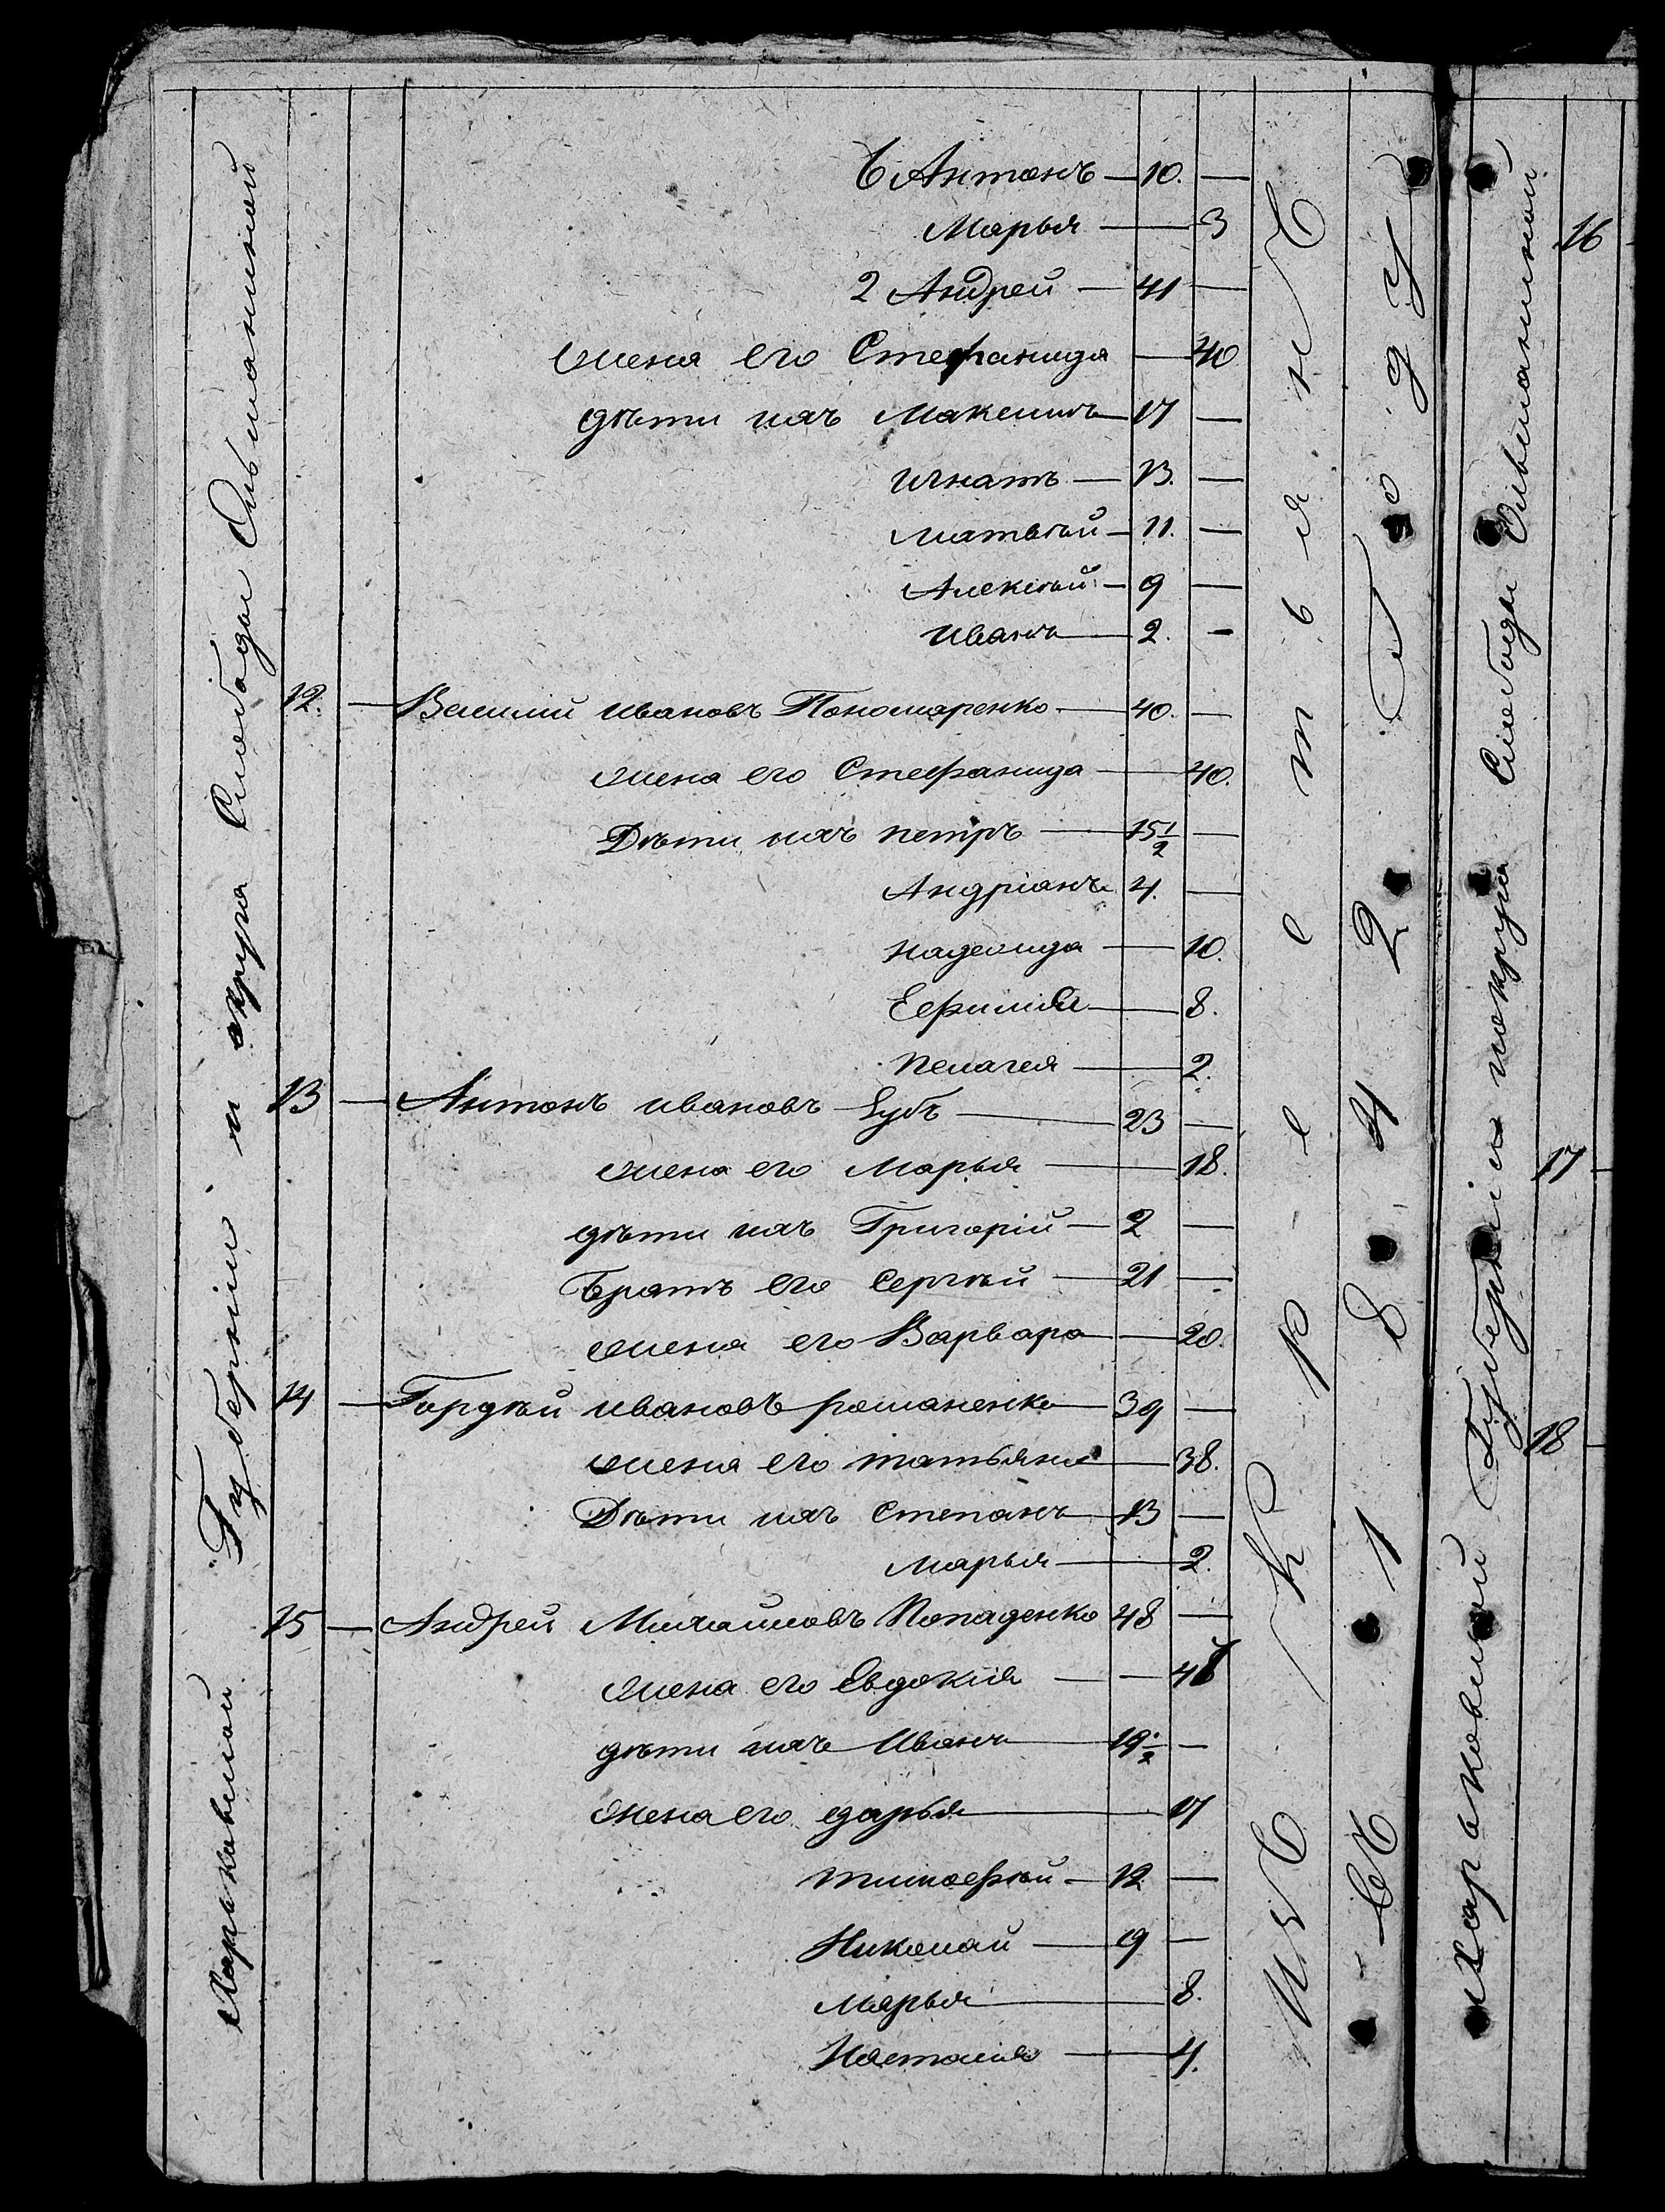 Харьковской Губерніи и округа Слободы Ольшанской
6 Антонъ — 10. —
Марья — 3
2 Андрей — 41 —
жена его Стефанида — 40
дѣти ихъ Максимъ — 17 —
Игнатъ — 13. —
Матвѣй — 11. —
Алексѣй — 9 —
Иванъ — 2. —
12. — Василий Ивановъ Пономаренко — 40. —
жена его Стефанида — 40.
Дѣти ихъ петръ — 15 1/2 —
Андріанъ 4. —
— 10.
Ефимія — 8.
Пелагея — 2.
13 — Антонъ Ивановъ — 23 —
жена его Марья — 18.
дѣти ихъ Григорій — 2 —
братъ его Сергѣй — 21 —
жена его Варвара — 20.
14 — Гордѣй Ивановъ романенко — 39 —
жена его татьяна — 38.
Дѣти ихъ Степанъ — 13 —
марья — 2.
15 — Андрей Михайловъ Попаденко 48 —
жена его Евдокія — 48
дѣти ихъ Иванъ — 19 1/2 —
жена его дарья — 17
тимофѣй — 12 —
Николай — 9 —
Марья — 8.
Наталія — 4.
Изъ Крестьянъ
Съ 1842 Году
Харьковской Губерніи и округа Слободы Ольшанской
16
17
18